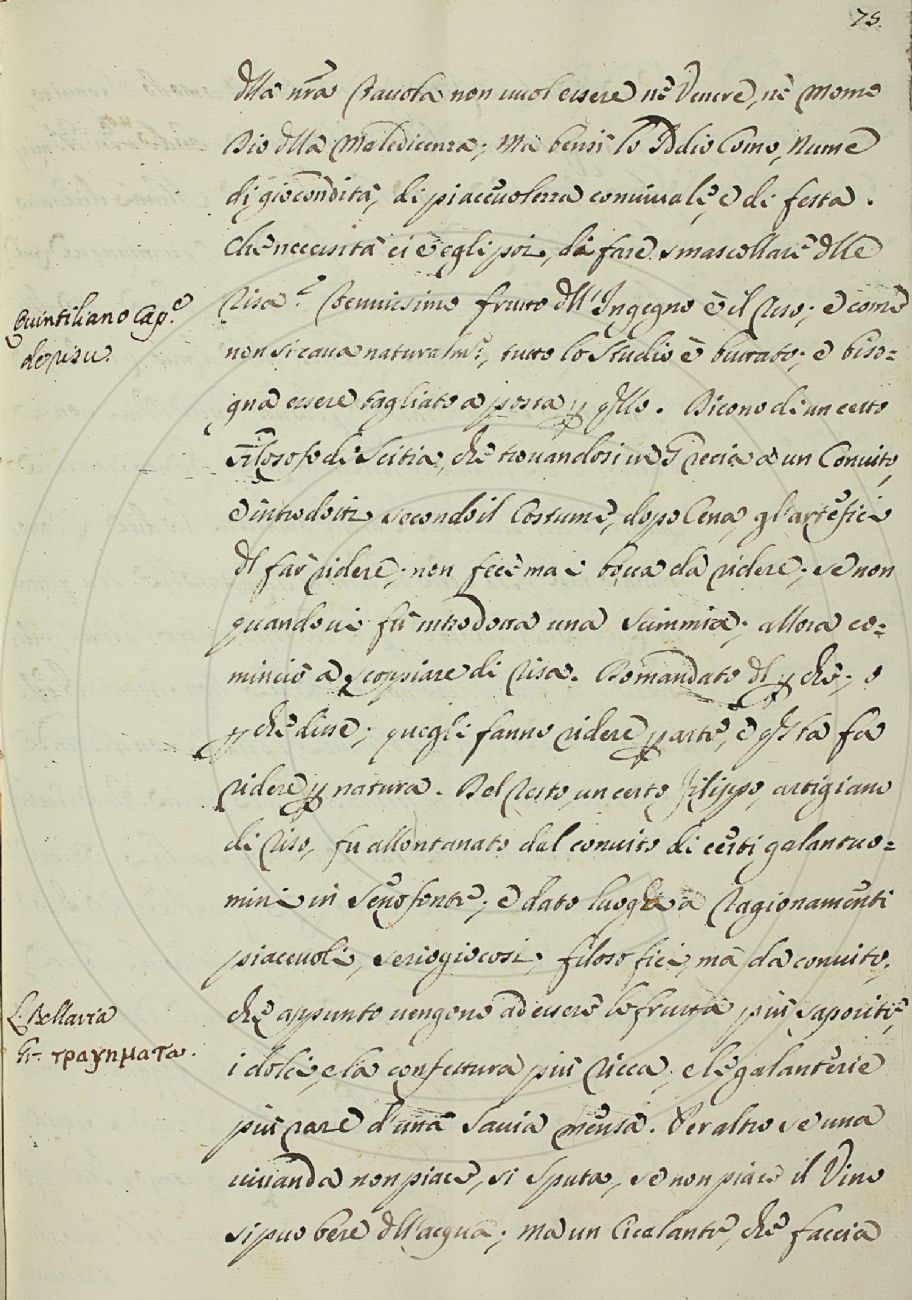 75.
dlla nrã Tavola non vuol essere nè Venere, nè Momo
Dio dlla Maledicenza; Ma bensì lo Ddio Como, Nume
di giocondità, di piacevolezza convivale, e di festa.
Che necessità ci è egli poi, di fare smascellare dlle
Risa? Tenuissimo frutto dll'Ingegno è il riso; e come
Quintiliano Cap.º
de risu.
non si cava naturalmᵉ, tutto lo Studio è buttato; e biso=
gna essere tagliato a posta p qllo. Dicono di un certo
Filosofo di Scitia, che trovandosi in Grecia a un Convito,
e introdotti secondo il Costume, dopo Cena, gl'artefici
dl far ridere; non fece mai bocca da ridere; se non
quando vi fù introdotta una Scimmia; allora co=
minciò a scoppiare di risa. Domandato dl pchè; o
pchè disse; quegli fanno ridere p arte, e qsta fa
ridere p natura. Del resto, un certo Filippo, artigiano
di riso, fu allontanato dal convito di certi galantuo=
mini in Senofonte; e dato luogo a Ragionamenti
piacevoli, seriogiocosi, filosofici, mà da convito,
che appunto vengono ad essere le frutta più saporite,
L. Bellaria
Gr. τραγηματα.
i dolci, e la confettura più ricca, e le galanterie
più rare d'una Savia mensa. Per altro se una
vivanda non piace, si sputa, se non piace il Vino
si puo bere dll'acqua; ma un Cicalante, che faccia